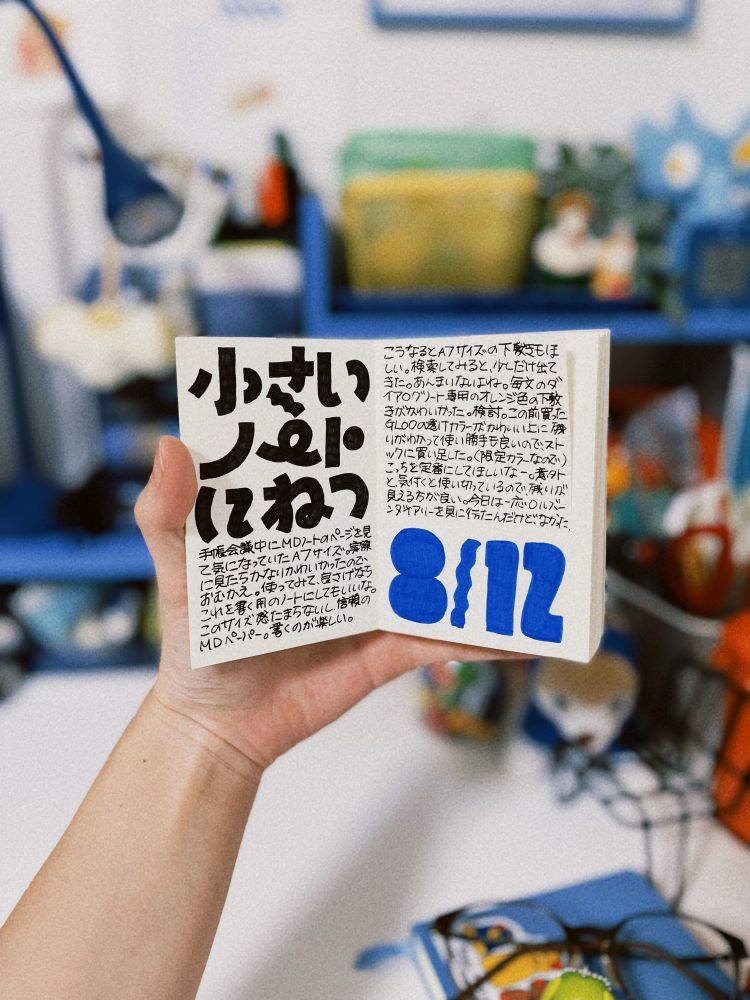 小さい
ノート
にねつ
手帳会議中にMDノートのページを見
て気になっていたA7サイズ。実際
に見たらかなりかわいかったので
おむかえ。使ってみて、良さげなら
これを書く用のノートにしてもいいな。
このサイズ感たまらないし、信頼の
MDペーパー。書くのが楽しい。
こうなるとA7サイズの下敷きもほ
しい。検索してみると、少しだけ出て
きた。あんまりないよね。毎文のダ
イアログノート専用のオレンジ色の下敷
きがかわいかった。検討。この前買った
GLOOの透けカラーがかわいい上に残
りがわかって使い勝手も良いので、スト
ックに買い足した。(限定カラーなので)
こっちを定番にしてほしいなー。意外
と気付くと使い切っているので、残りが
見える方が良い。今日は一応ロルバー
ンダイアリーを見に行ったんだけどなかった。
8/12